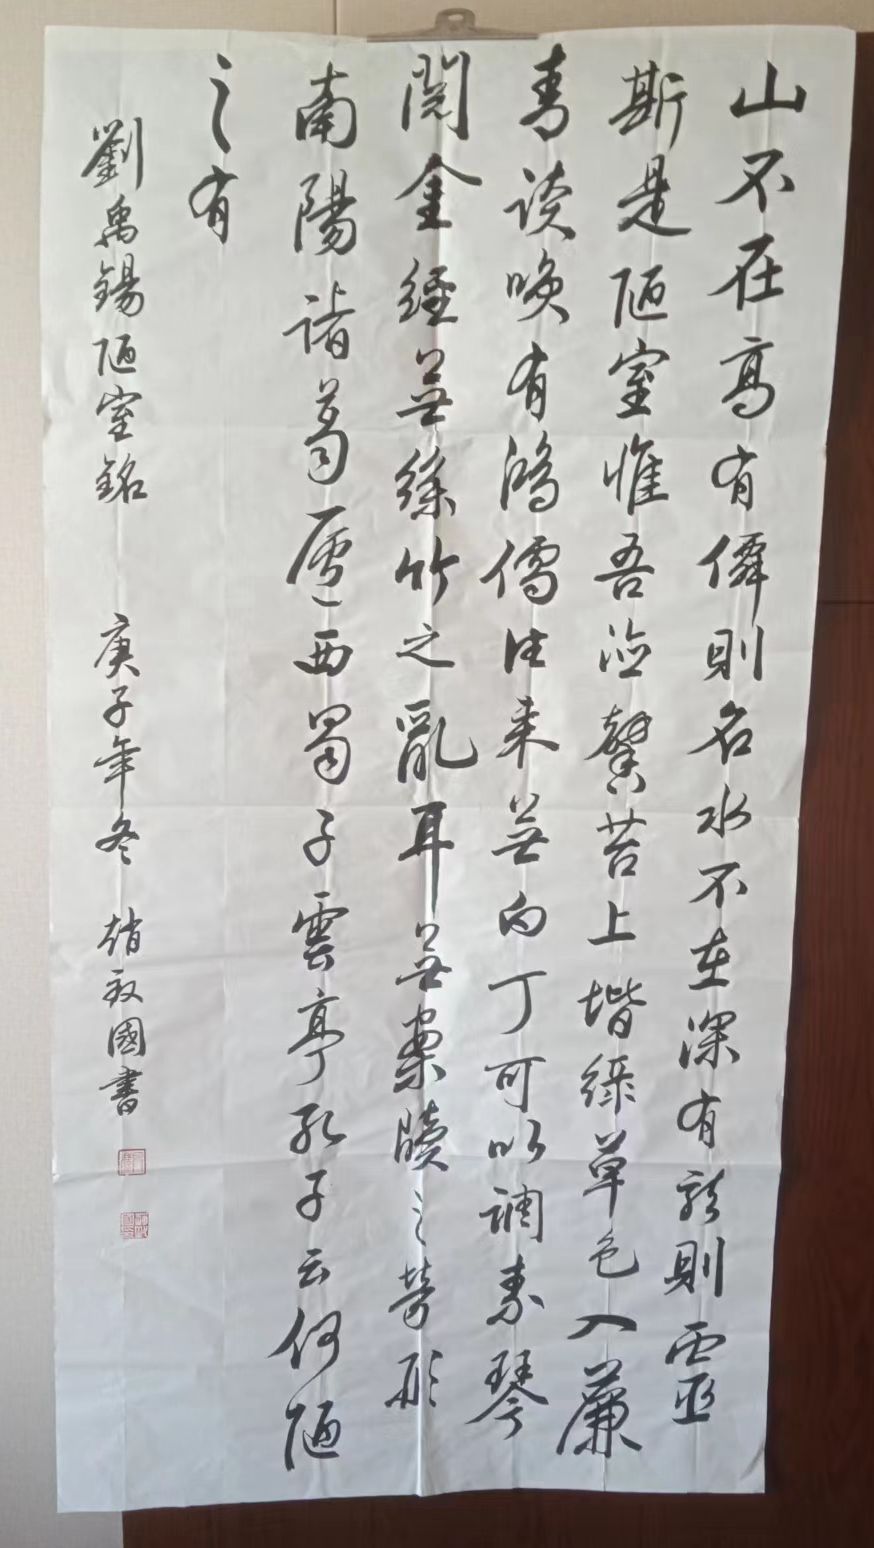 山不在高有僊則名水不在深有龍則靈
斯是陋室惟吾德馨苔上堦綠草色入簾
青談咲有鴻儒往来無白丁可以調素琴
閱金經無絲竹之亂耳無案牘之勞形
南陽諸葛廬西蜀子雲亭孔子云何陋
之有
劉禹錫陋室銘 庚子年冬 趙國書